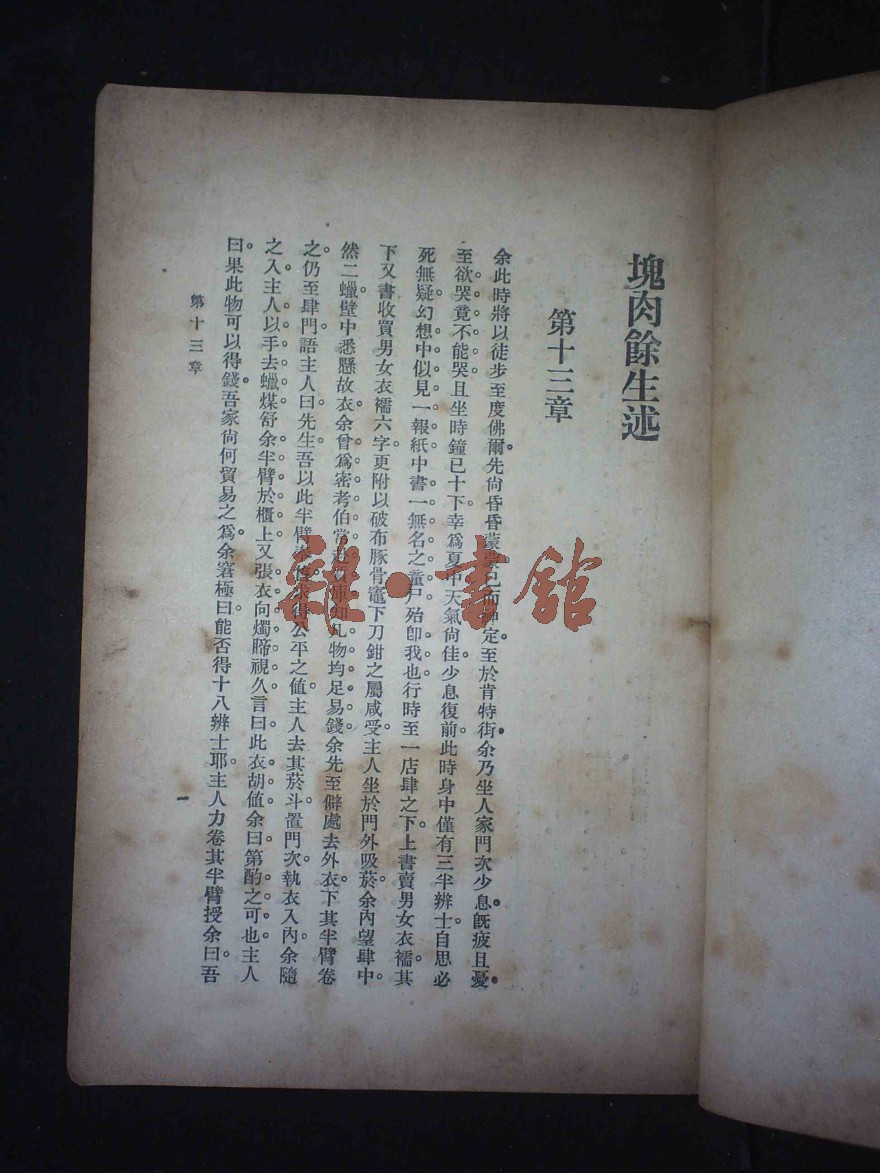 塊肉餘生述
第十三章
余此時將以徒步至度佛爾。先尙昏昏蒙蒙已而神定。至於肯特街。余乃坐人家門次少息。旣疲且憂。
至欲哭竟不能哭且坐時鐘已十下幸爲夏中天氣尙佳少息復前此時身中僅有三半辨士自思必
死無疑幻想中似見一報紙中書一無名之童尸殆卽我也行時至一店肆之下。上書賣男女衣襦其
下又書收買男女衣襦六字。更附以破布豚骨竈下刀鉗之屬咸受。主人坐於門外吸菸。余內望肆中。
然二蠟壁中悉懸故衣余曾爲密考伯常
知凡物均足易錢余先至僻處去外衣。下其半臂卷
之。仍至肆門語主人曰先生吾以此半臂
得公平之値。主人去其菸斗置門次。執衣入內。余隨
之入。主人以手去蠟煤舒余半臂於櫃上又張衣向燭睇視久言曰此衣胡値余曰第酌之可也主人
曰。果此物可以得錢。吾家尙何貿易之爲。余窘極曰。能否得十八辨士耶。主人力卷其半臂授余曰。吾
第十三章
一
雜·書館